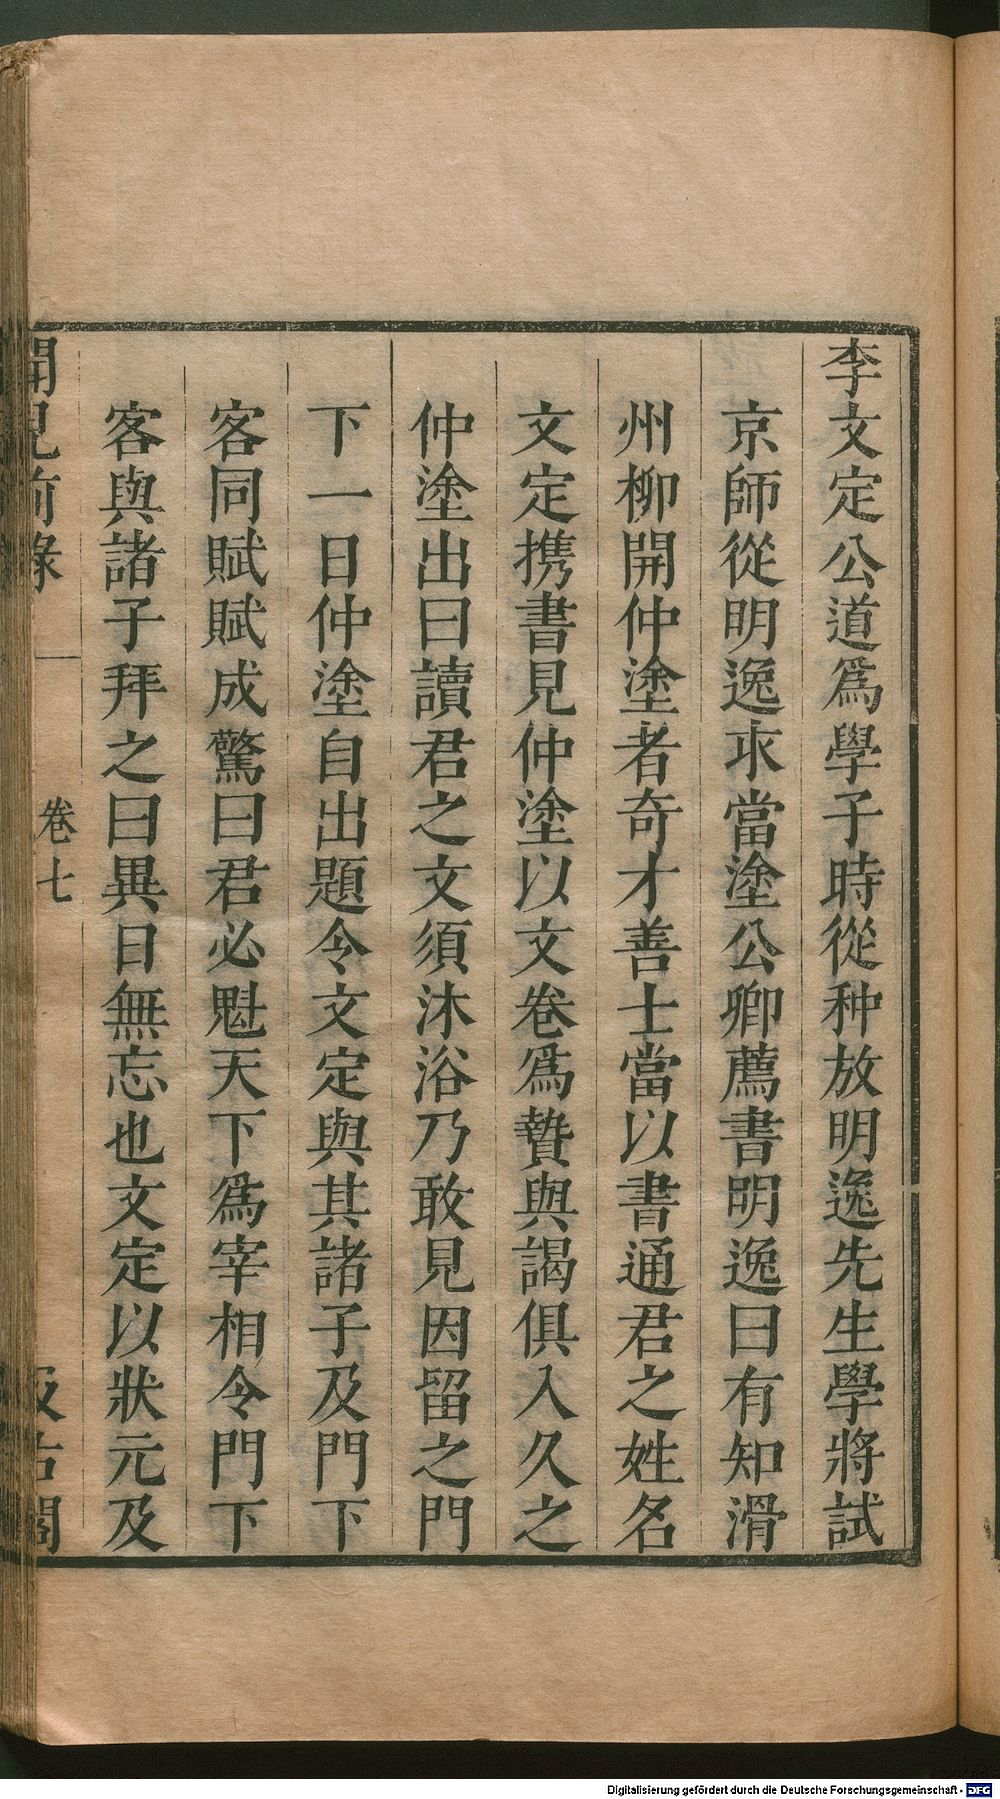 李文定公道爲學子時從种放明逸先生學將試
京師從明逸求當塗公卿薦書明逸曰有知滑
州柳開仲塗者奇才善士當以書通君之姓名
文定携書見仲塗以文卷爲贄與謁俱入久之
仲塗出曰讀君之文須沐浴乃敢見因留之門
下一日仲塗自出題令文定與其諸子及門下
客同賦賦成驚曰君必魁天下爲宰相令門下
客與諸子拜之曰異日無忘也文定以狀元及
聞見前錄
卷七
汲古閣
Digitalisierung gefördert durch die Deutsche Forschungsgemeinschaft - DFG